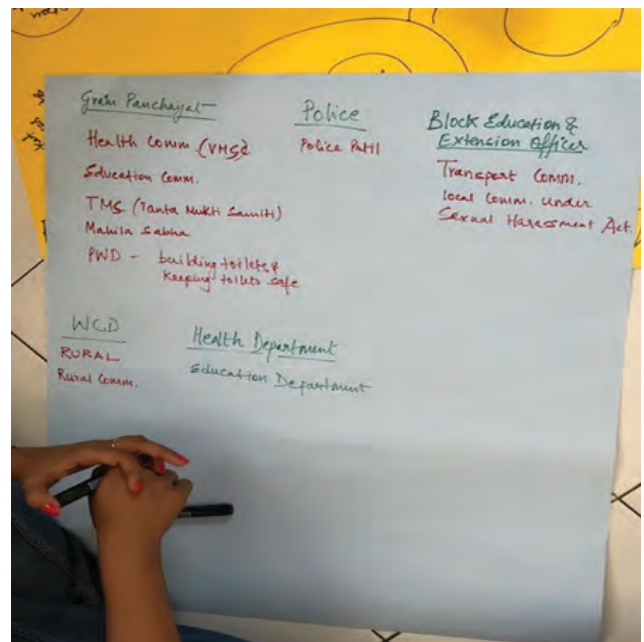 Gram Panchayat
Health Comm. (VHSC)
Education Comm.
TMS (Tanta Mukti Samiti)
Mahila Sabha
PWD - building toilets &
Keeping toilets safe
Police
Police Patil
Block Education &
Extension Officer
Transport Comm.
local Comm. under
Sexual Harassment Act.
WCD
RURAL
Rural Comm.
Health Department
Education Department